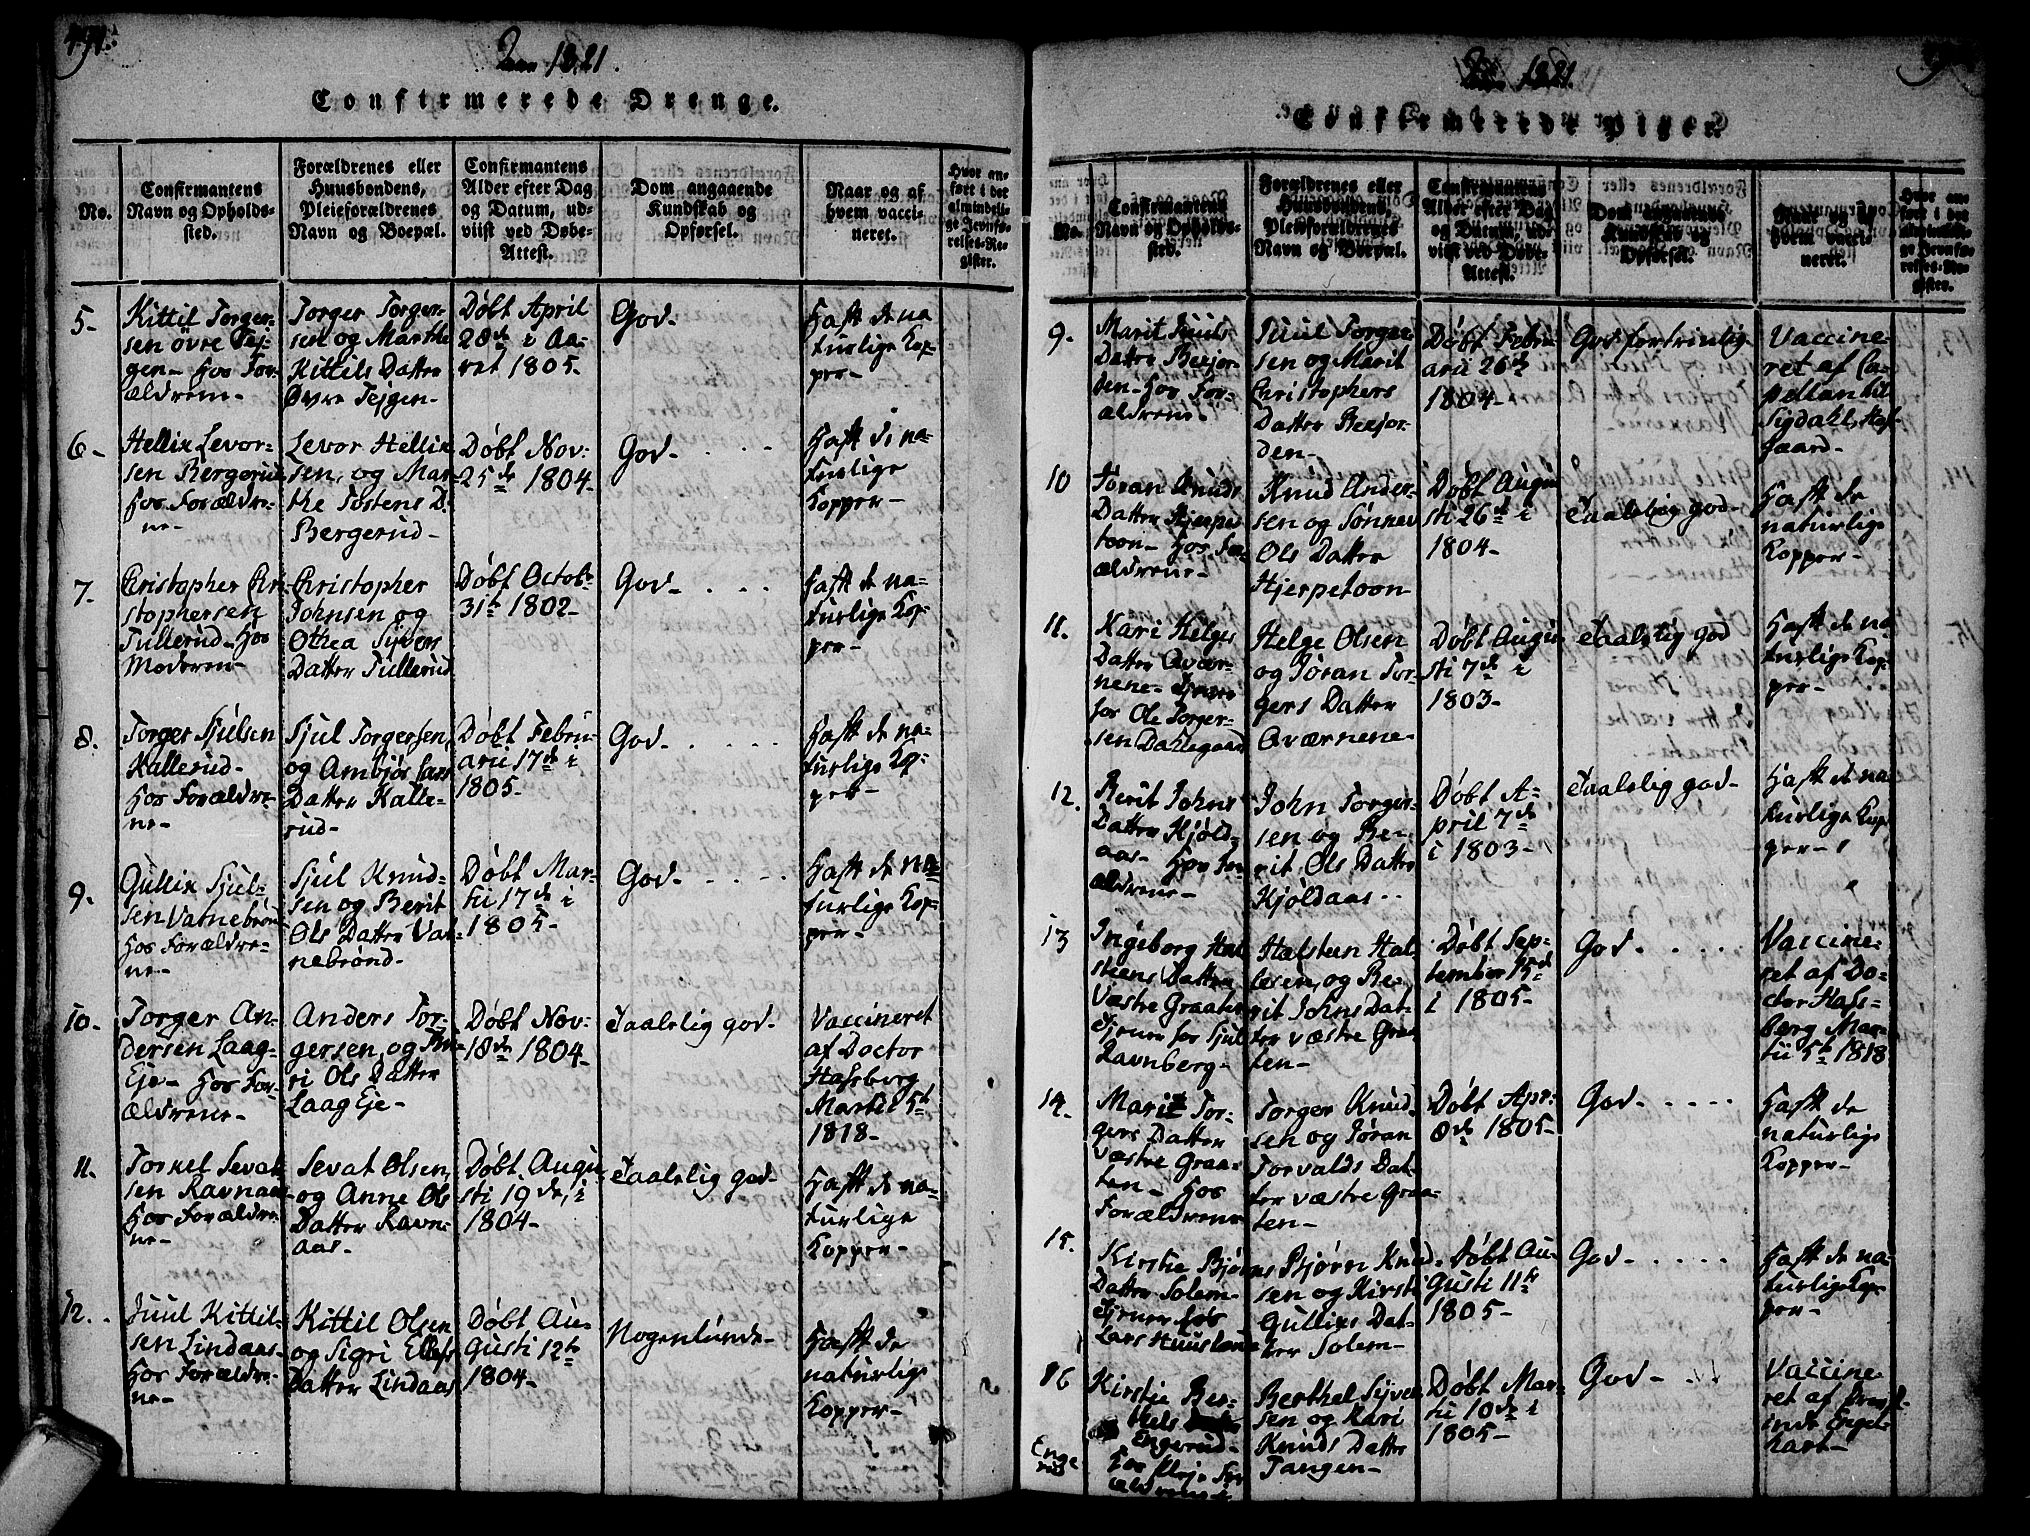 Aar 1821.
Confirmerede Drenge.
No.
Confirmantens
Navn og Opholds-
sted.
Forældrenes eller
Huusbondens,
Pleieforældrenes
Navn og Boepæl.
Confirmantens
Alder efter Dag
og Datum, ud-
viist ved Døbe-
Attest.
Dom angaaende
Kundskab og
Opførsel.
Naar og af
hvem vacci-
neret.
Hvor an-
ført i det
almindeli-
ge Jevnfø-
relses-Re-
gister.
5-
Kittil Torger-
sen øvre Tej-
gen- hos For-
ældrene-
Torger Torger-
sen og Marthe
Kittils Datter
Øvre Tejgen-
Døbt April
28de i Aa-
ret 1805-
God-
Haft de na
turlige Kop-
per-
6-
Hellix Levor-
sen Bergerud
hos Forældre-
ne-
Levor Hellix
sen, og Mar-
the Tostens D.
Bergerud-
Døbt Nov-
25de 1804-
God-
Haft de na-
turlige
Kopper-
7.
Christopher Chri-
stophersen
Tullerud- hos
Moderen-
Christopher
Johnsen og
Othea Syvers
Datter Tullerud
Døbt Octob-
31te 1802-
God-
Haft de na-
turlige Kop-
per-
8.
Torger Sjulsen
Kallerud-
hos Forældre-
ne-
Sjul Torgersen,
og Ambjør Lars
Datter Kalle-
rud-
Døbt Febru-
arii 17de i
1805-
God-
Haft de na-
turlige Kop-
per-
9.
Gullix Sjul-
sen Vatnebrøn-
hos Forældre-
ne-
Sjul Knud-
sen og Berit
Ols Datter Vat-
nebrønd-
Døbt Mar-
tii 17de i
1805-
God-
Haft de na-
turlige Kop-
per-
10-
Torger An-
dersen Laag-
Eje- hos For-
ældrene-
Anders Tor-
gersen, og
ri Ols Datter
Laag Eje-
Døbt Nov-
18de 1804-
Taalelig god-
Vaccineret
af Doctor
Hafsberg
Martii 5te
1818-
11.
Torkel Sevat
sen Ravnaas
hos Forældre-
ne-
Sevat Olsen,
og Anne Ols
Datter Ravn-
aas-
Døbt Augu-
sti 19de, i
1804-
Taalelig god-
Haft de na-
turlige
Kopper-
12.
Juul Kittil-
sen Lindaas-
hos Forældre-
ne-
Kittil Olsen
og Sigri Ellefs
Datter Lindaas
Døbt Au-
gusti 12te
1804-
Nogenlunde-
Haft de
naturlige
Kopper-
Aar 1821.
Confirmerede Piger.
No.
Confirmantens
Navn og Opholds-
sted.
Forældrenes eller
Huusbondens,
Pleieforældrenes
Navn og Boepæl.
Confirmantens
Alder efter Dag
og Datum, ud-
viist ved Døbe-
Attest.
Dom angaaende
Kundskab og
Opførsel.
Naar og af
hvem vacci-
neret.
Hvor an-
ført i det
almindeli-
ge Jevnfø-
relses-Re-
gister.
9.
Marit Juuls
Datter Beejor-
den- hos For-
ældrene-
Juul Torger
sen og Marit
Christophers
Datter Beejor-
den-
Døbt Febru
arii 26de
1804-
God fortrinlig
Vaccine-
ret af Ca-
pellan til
Sigdahl,
gaard-
10
Jøran Knuds
Datter Hjerpe
toon- hos For-
ældrene-
Knud Ander-
sen og Sønnev
Ols Datter
Hjerpetoon
Døbt Augu
sti 26de i
1804-
Taalelig god-
Haft de
naturlige
Kopper-
11.
Kari Helges
Datter Avær-
nene- tjener
for Ole Torger-
sen Dahlegaard
Helge Olsen
og Jøran Tor-
gers Datter
Aværnene-
Døbt Augu
sti 7de i
1803-
Taalelig god
Haft de na-
turlige Kop-
per-
12.
Berit Johns
Datter Kjøld-
aas- hos For-
ældrene-
John Torger-
sen og Be-
rit Ols Datter
Kjøldaas-
Døbt A-
pril 7de
i 1803-
Taalelig god-
Haft de na-
turlige Kop-
per-
13
Ingeborg Hal
steens Datter
Væstre Graaten
Tjener for Sjul
Ravnberg-
Halsteen Hal-
, og Be-
rit Johns Dat-
ter væstre Graa-
ten-
Døbt Sep-
tember 15de
i 1805-
God-
Vaccine-
ret af Do-
ctor Hafs-
berg Mar-
tii 5te 1818
14.
Marit Tor-
gers Datter
Væstre Graa-
ten- hos
Forældrene
Torger Knud
sen og Jøran
Torvalds Dat-
ter væstre Graa-
ten-
Døbt Apr-
8de 1805-
God-
Haft de
naturlige
Kopper-
15.
Kirstie Bjørns
Datter Solem-
tjener hos
Lars Huuslene
Bjørn Knud-
sen og Kirsti
Gullixs Dat-
ter Solem-
Døbt Au-
gusti 11te
1805-
God-
Haft de na-
turlige Kop-
per-
16
Kirstie Ber-
thels
Engerud-
hos Pleje For
ældrene
Enge
rud
Berthel Syver
sen og Kari
Knuds Datter
Tangen-
Døbt Mar-
tii 10de i
1805-
God-
Vaccine-
ret af
inde Engel-
hart-